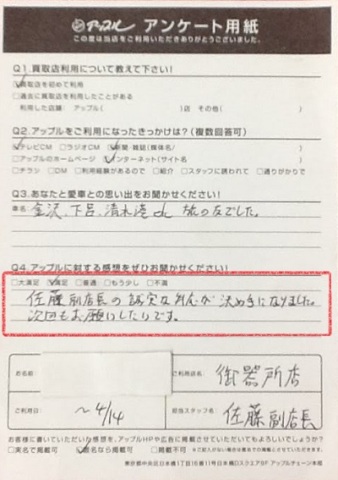 アップル アンケート用紙
この度は当店をご利用いただきありがとうございました。
Q1.買取店利用について教えて下さい!
☑買取店を初めて利用
□過去に買取店を利用したことがある
利用した店舗: アップル( )店 その他( )
Q2.アップルをご利用になったきっかけは?(複数回答可)
☑テレビCM □ラジオCM ☑新聞・雑誌(媒体名/ )
□アップルのホームページ ☑インターネット(サイト名 )
□チラシ □DM □利用経験があるので □紹介 □スタッフに誘われて □通りがかりで
Q3.あなたと愛車との思い出をお聞かせください!
車名 金沢、下呂、清水港etc 旅の友でした。
Q4.アップルに対する感想をぜひお聞かせください!
□大満足 ☑満足 □普通 □もう少し □不満
佐藤副店長の誠実な が決め手になりました。
次回もお願いしたいです。
お名前
ご利用店名 御器所店
ご利用日 〜4/14
担当スタッフ名 佐藤副店長
お客様に書いていただいた感想を、アップルHPや広告に掲載させていただいてもよろしいでしょうか?
□実名で掲載可 ☑匿名なら掲載可 □掲載不可
東京都中央区日本橋1丁目16番11号日本橋Dスクエア8F アップルチェーン本部